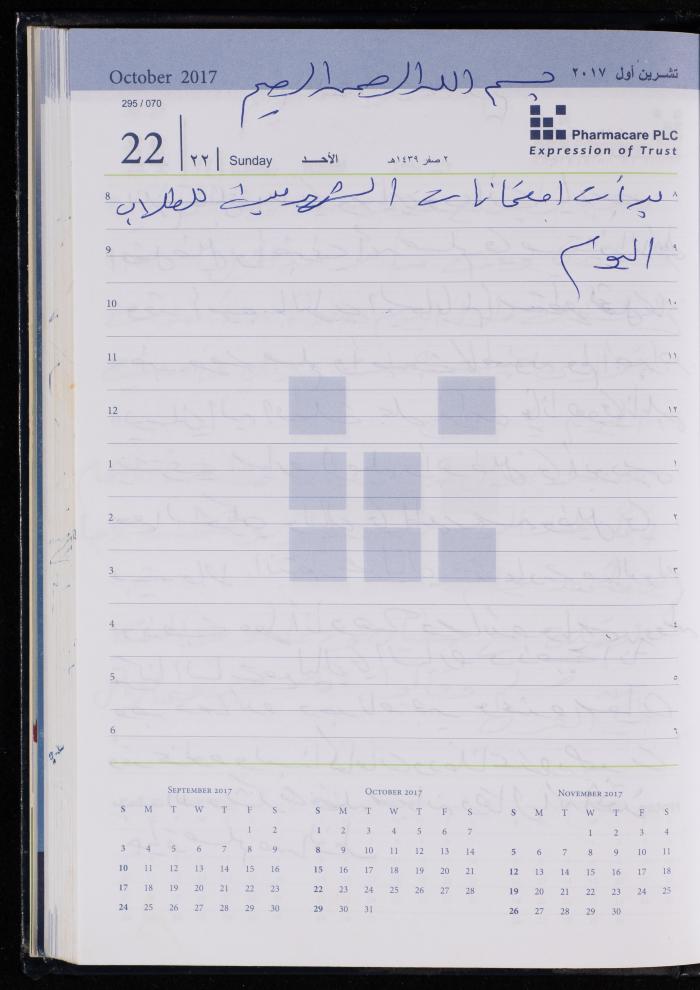 October 2017 بسم الله الرحمن الرحيم تشرين أول ٢٠١٧
295 / 070
22 ٢٢ Sunday الأحد ٢ صفر ١٤٣٩هـ
Pharmacare PLC
Expression of Trust
8 بدأت امتحانات الشهرين للطلاب ٨
9 اليوم ٩
10 ١٠
11 ١١
12 ١٢
1 ١
2 ٢
3 ٣
4 ٤
5 ٥
6 ٦
SEPTEMBER 2017
S M T W T F S
1 2
3 4 5 6 7 8 9
10 11 12 13 14 15 16
17 18 19 20 21 22 23
24 25 26 27 28 29 30
OCTOBER 2017
S M T W T F S
1 2 3 4 5 6 7
8 9 10 11 12 13 14
15 16 17 18 19 20 21
22 23 24 25 26 27 28
29 30 31
NOVEMBER 2017
S M T W T F S
1 2 3 4
5 6 7 8 9 10 11
12 13 14 15 16 17 18
19 20 21 22 23 24 25
26 27 28 29 30